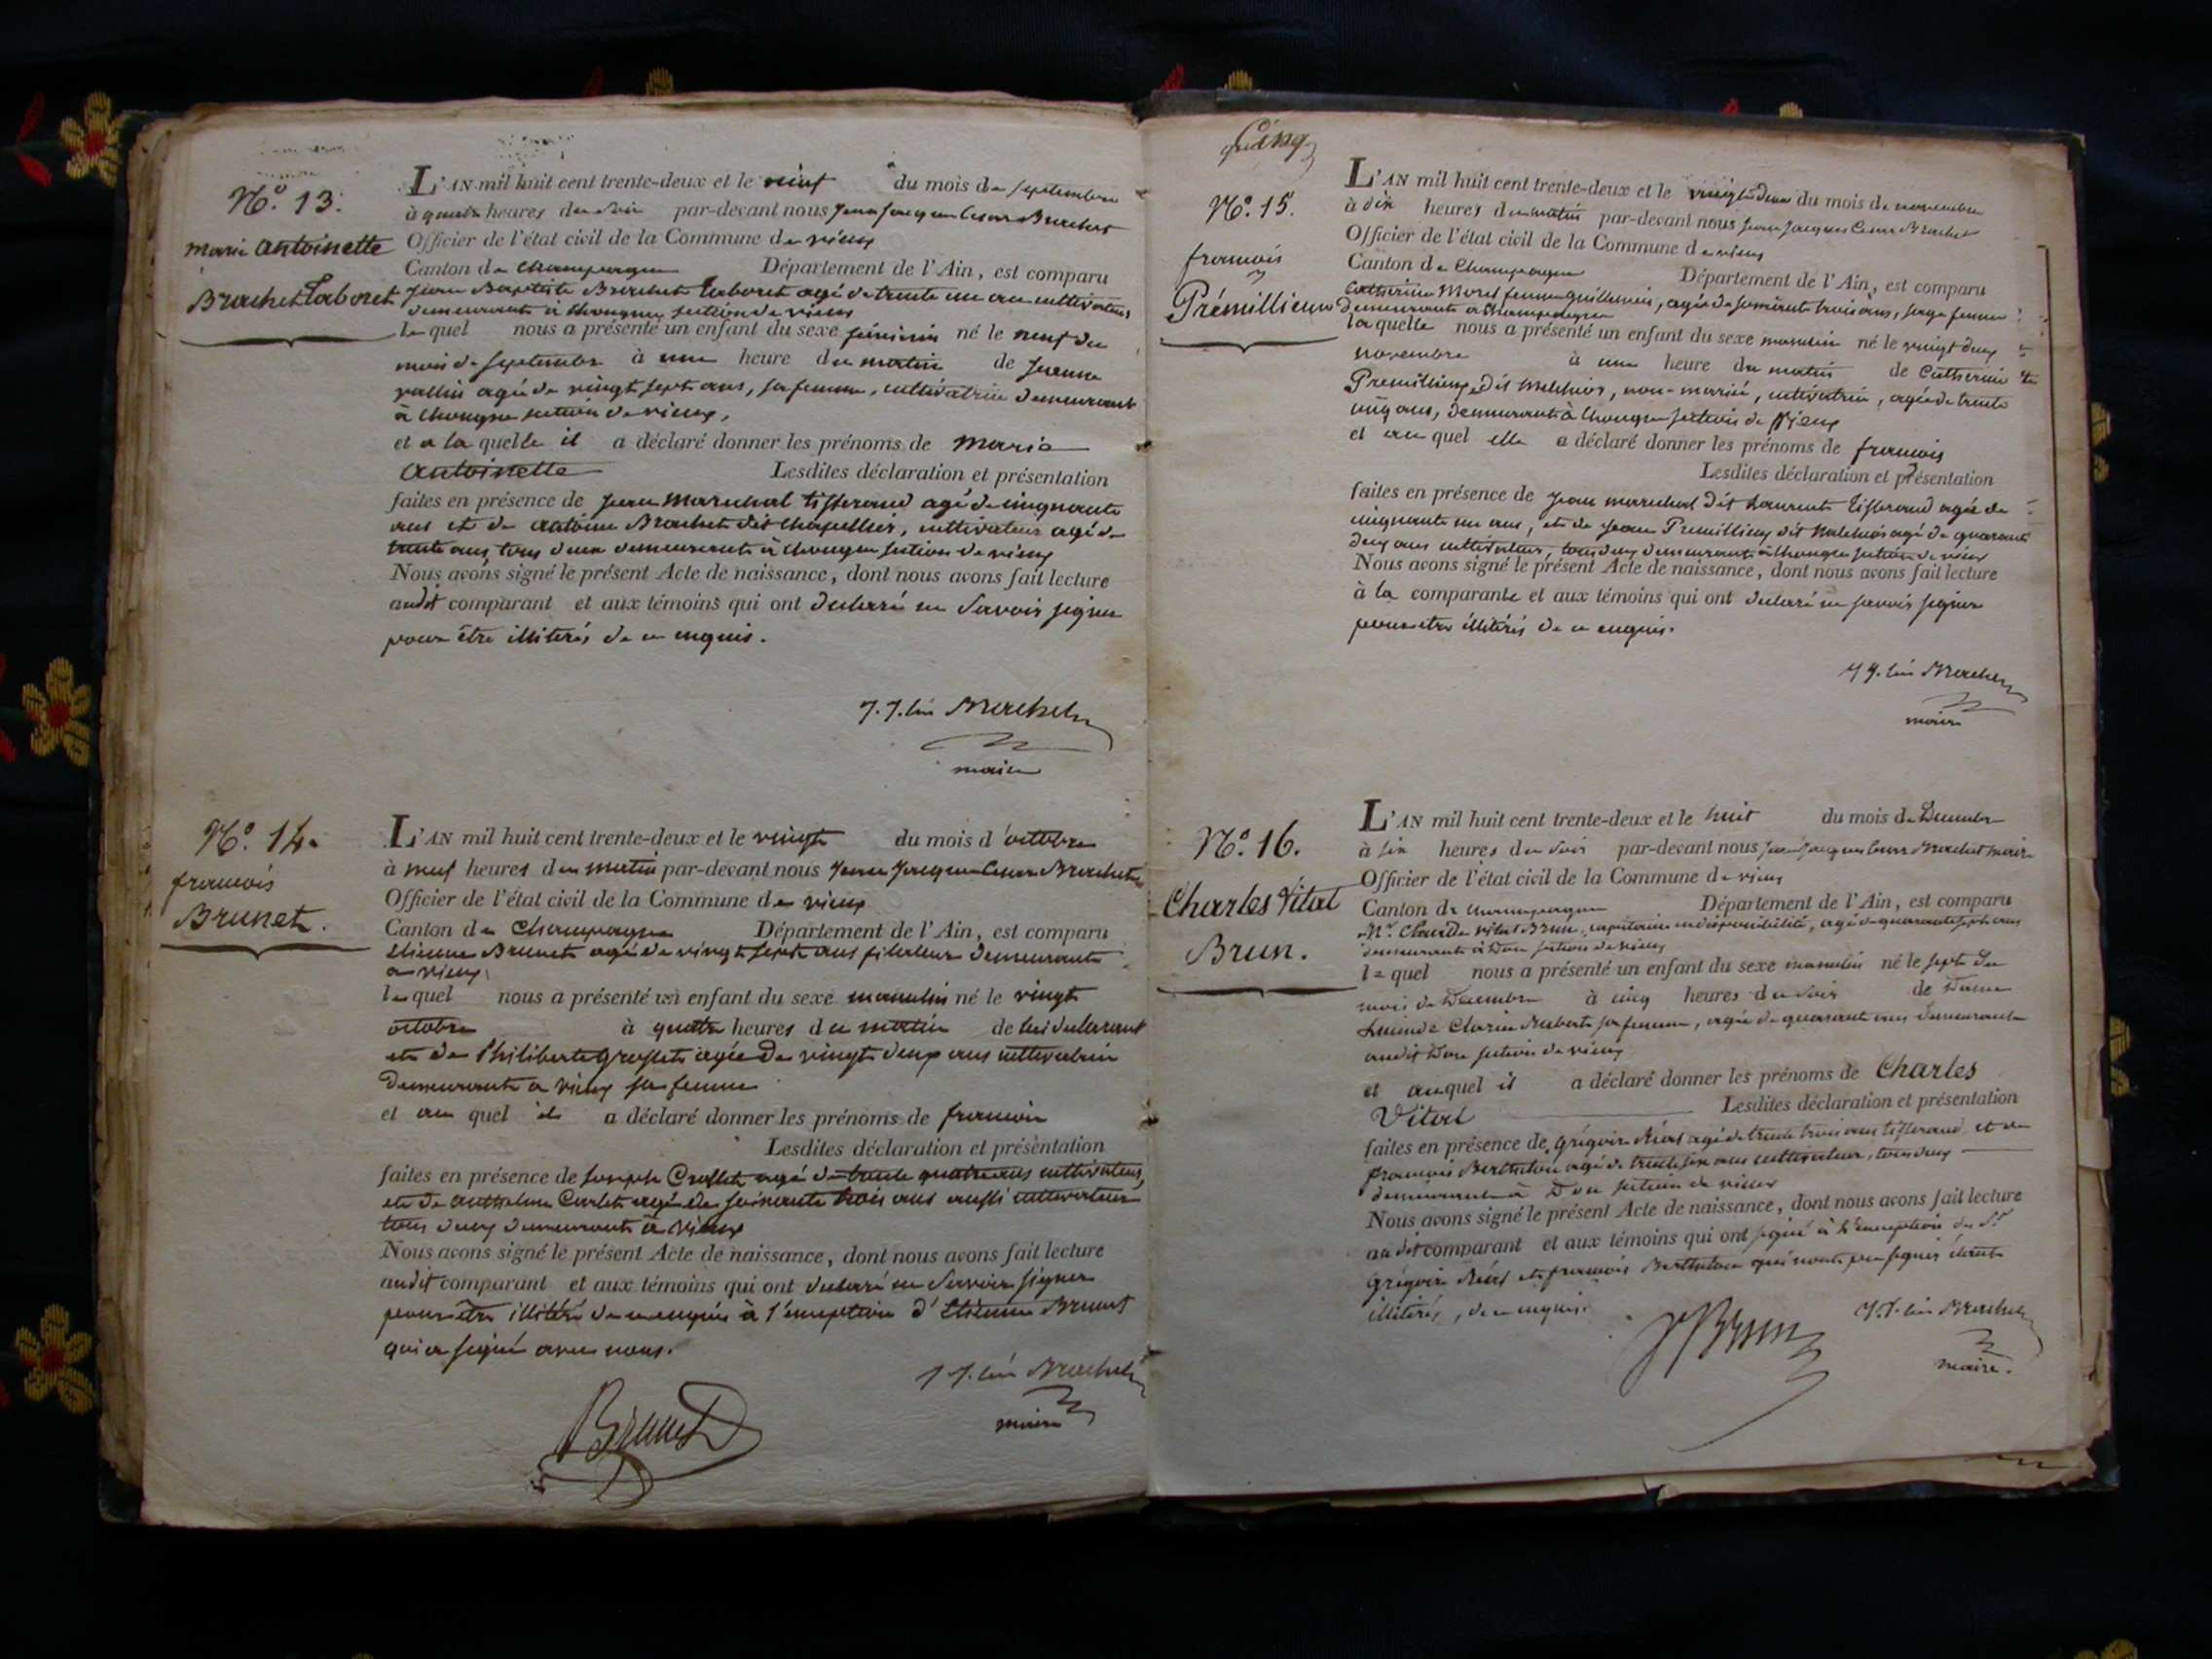 N.º 13.
Marie Antoinette
Brachet Laboret
L'AN mil huit cent trente-deux et le neuf du mois de septembre
à quatre heures du soir par-devant nous Jean Jacques Cesar Brachet
Officier de l'état civil de la Commune de vieux
Canton de Champagne Département de l'Ain, est comparu
Jean Baptiste Brachet Laboret agé de trente un an cultivateur
demeurant à Chongnes section de vieux
lequel nous a présenté un enfant du sexe féminin né le neuf du
mois de septembre à une heure du matin de Jeanne
vallin agée de vingt sept ans, sa femme, cultivatrice demeurant
à Chongnes section de vieux,
et a la quelle il a déclaré donner les prénoms de Marie
Antoinette Lesdites déclaration et présentation
faites en présence de Jean Marechal tisserand agé de cinquante
ans et de Antoine Brachet dit Chapellier, cultivateur agé de
trente ans, tous deux demeurant à Chongnes section de vieux
Nous avons signé le présent Acte de naissance, dont nous avons fait lecture
audit comparant et aux témoins qui ont declaré ne savoir signer
pour être illitérés de ce enquis.
J. J. Cés Brachet
maire
N.º 14.
francois
Brunet.
L'AN mil huit cent trente-deux et le vingt du mois d'octobre
à neuf heures du matin par-devant nous Jean Jacques Cesar Brachet
Officier de l'état civil de la Commune de vieux
Canton de Champagne Département de l'Ain, est comparu
Etienne Brunet agé de vingt sept ans demeurant
a vieux
lequel nous a présenté un enfant du sexe masculin né le vingt
octobre à quatre heures du matin de lui declarant
et de Philiberte Grosset agée de vingt deux ans cultivatrice
demeurante a vieux sa femme
et au quel il a déclaré donner les prénoms de francois
Lesdites déclaration et présentation
faites en présence de Joseph agé de trente quatre ans cultivateur,
et de Anthelme Carlet agé de soixante trois ans aussi cultivateur
tous deux demeurant à vieux
Nous avons signé le présent Acte de naissance, dont nous avons fait lecture
audit comparant et aux témoins qui ont declaré ne savoir signer
pour être illitéré de ce enquis à l'exception d'Etienne Brunet
qui a signé avec nous.
Brunet
J. J. Cés Brachet
maire
Cinq
N.º 15.
francois
Prémillieux
L'AN mil huit cent trente-deux et le vingt deux du mois de novembre
à dix heures du matin par-devant nous Jean Jacques Cesar Brachet
Officier de l'état civil de la Commune de vieux
Canton de Champagne Département de l'Ain, est comparu
Catherine Morel femme Guillermin, agée de soixante trois ans, sage femme
demeurante a Champagne
laquelle nous a présenté un enfant du sexe masculin né le vingt deux
novembre à une heure du matin de Catherine
Premillieux dit Melchior, non-mariée, cultivatrice, agée de trente
cinq ans, demeurant à Chongnes section de Vieux
et au quel elle a déclaré donner les prénoms de francois
Lesdites déclaration et présentation
faites en présence de Jean marechal dit Laurent tisserand agé de
cinquante un ans, et de Jean Premillieux dit Melchior agé de quarante
deux ans cultivateur, tous deux demeurant à Chongnes section de vieux
Nous avons signé le présent Acte de naissance, dont nous avons fait lecture
à la comparante et aux témoins qui ont declaré ne savoir signer
pour etre illitérés de ce enquis.
J J. Cés Brachet
maire
N.º 16.
Charles Vital
Brun.
L'AN mil huit cent trente-deux et le huit du mois de Decembre
à six heures du soir par-devant nous Jean Jacques Cesar Brachet maire
Officier de l'état civil de la Commune de vieux
Canton de Champagne Département de l'Ain, est comparu
Mr. Claude vital Brun, capitaine en disponibilité, agé de quarante sept ans
demeurant à Don section de vieux
lequel nous a présenté un enfant du sexe masculin né le sept du
mois de Decembre à cinq heures du soir de Dame
Clarice Rubert sa femme, agée de quarante ans demeurant
audit Don section de vieux
et auquel il a déclaré donner les prénoms de Charles
Vital Lesdites déclaration et présentation
faites en présence de Grégoire agé de trente trois ans tisserand et de
francois Berthelon agé de trente six ans cultivateur, tous deux
demeurant à Don section de vieux
Nous avons signé le présent Acte de naissance, dont nous avons fait lecture
audit comparant et aux témoins qui ont signé à l'exception des Sr
Grégoire et francois Berthelon qui n'ont pas signés étant
illitérés, de ce enquis.
Brun
J. J. Cés Brachet
maire.